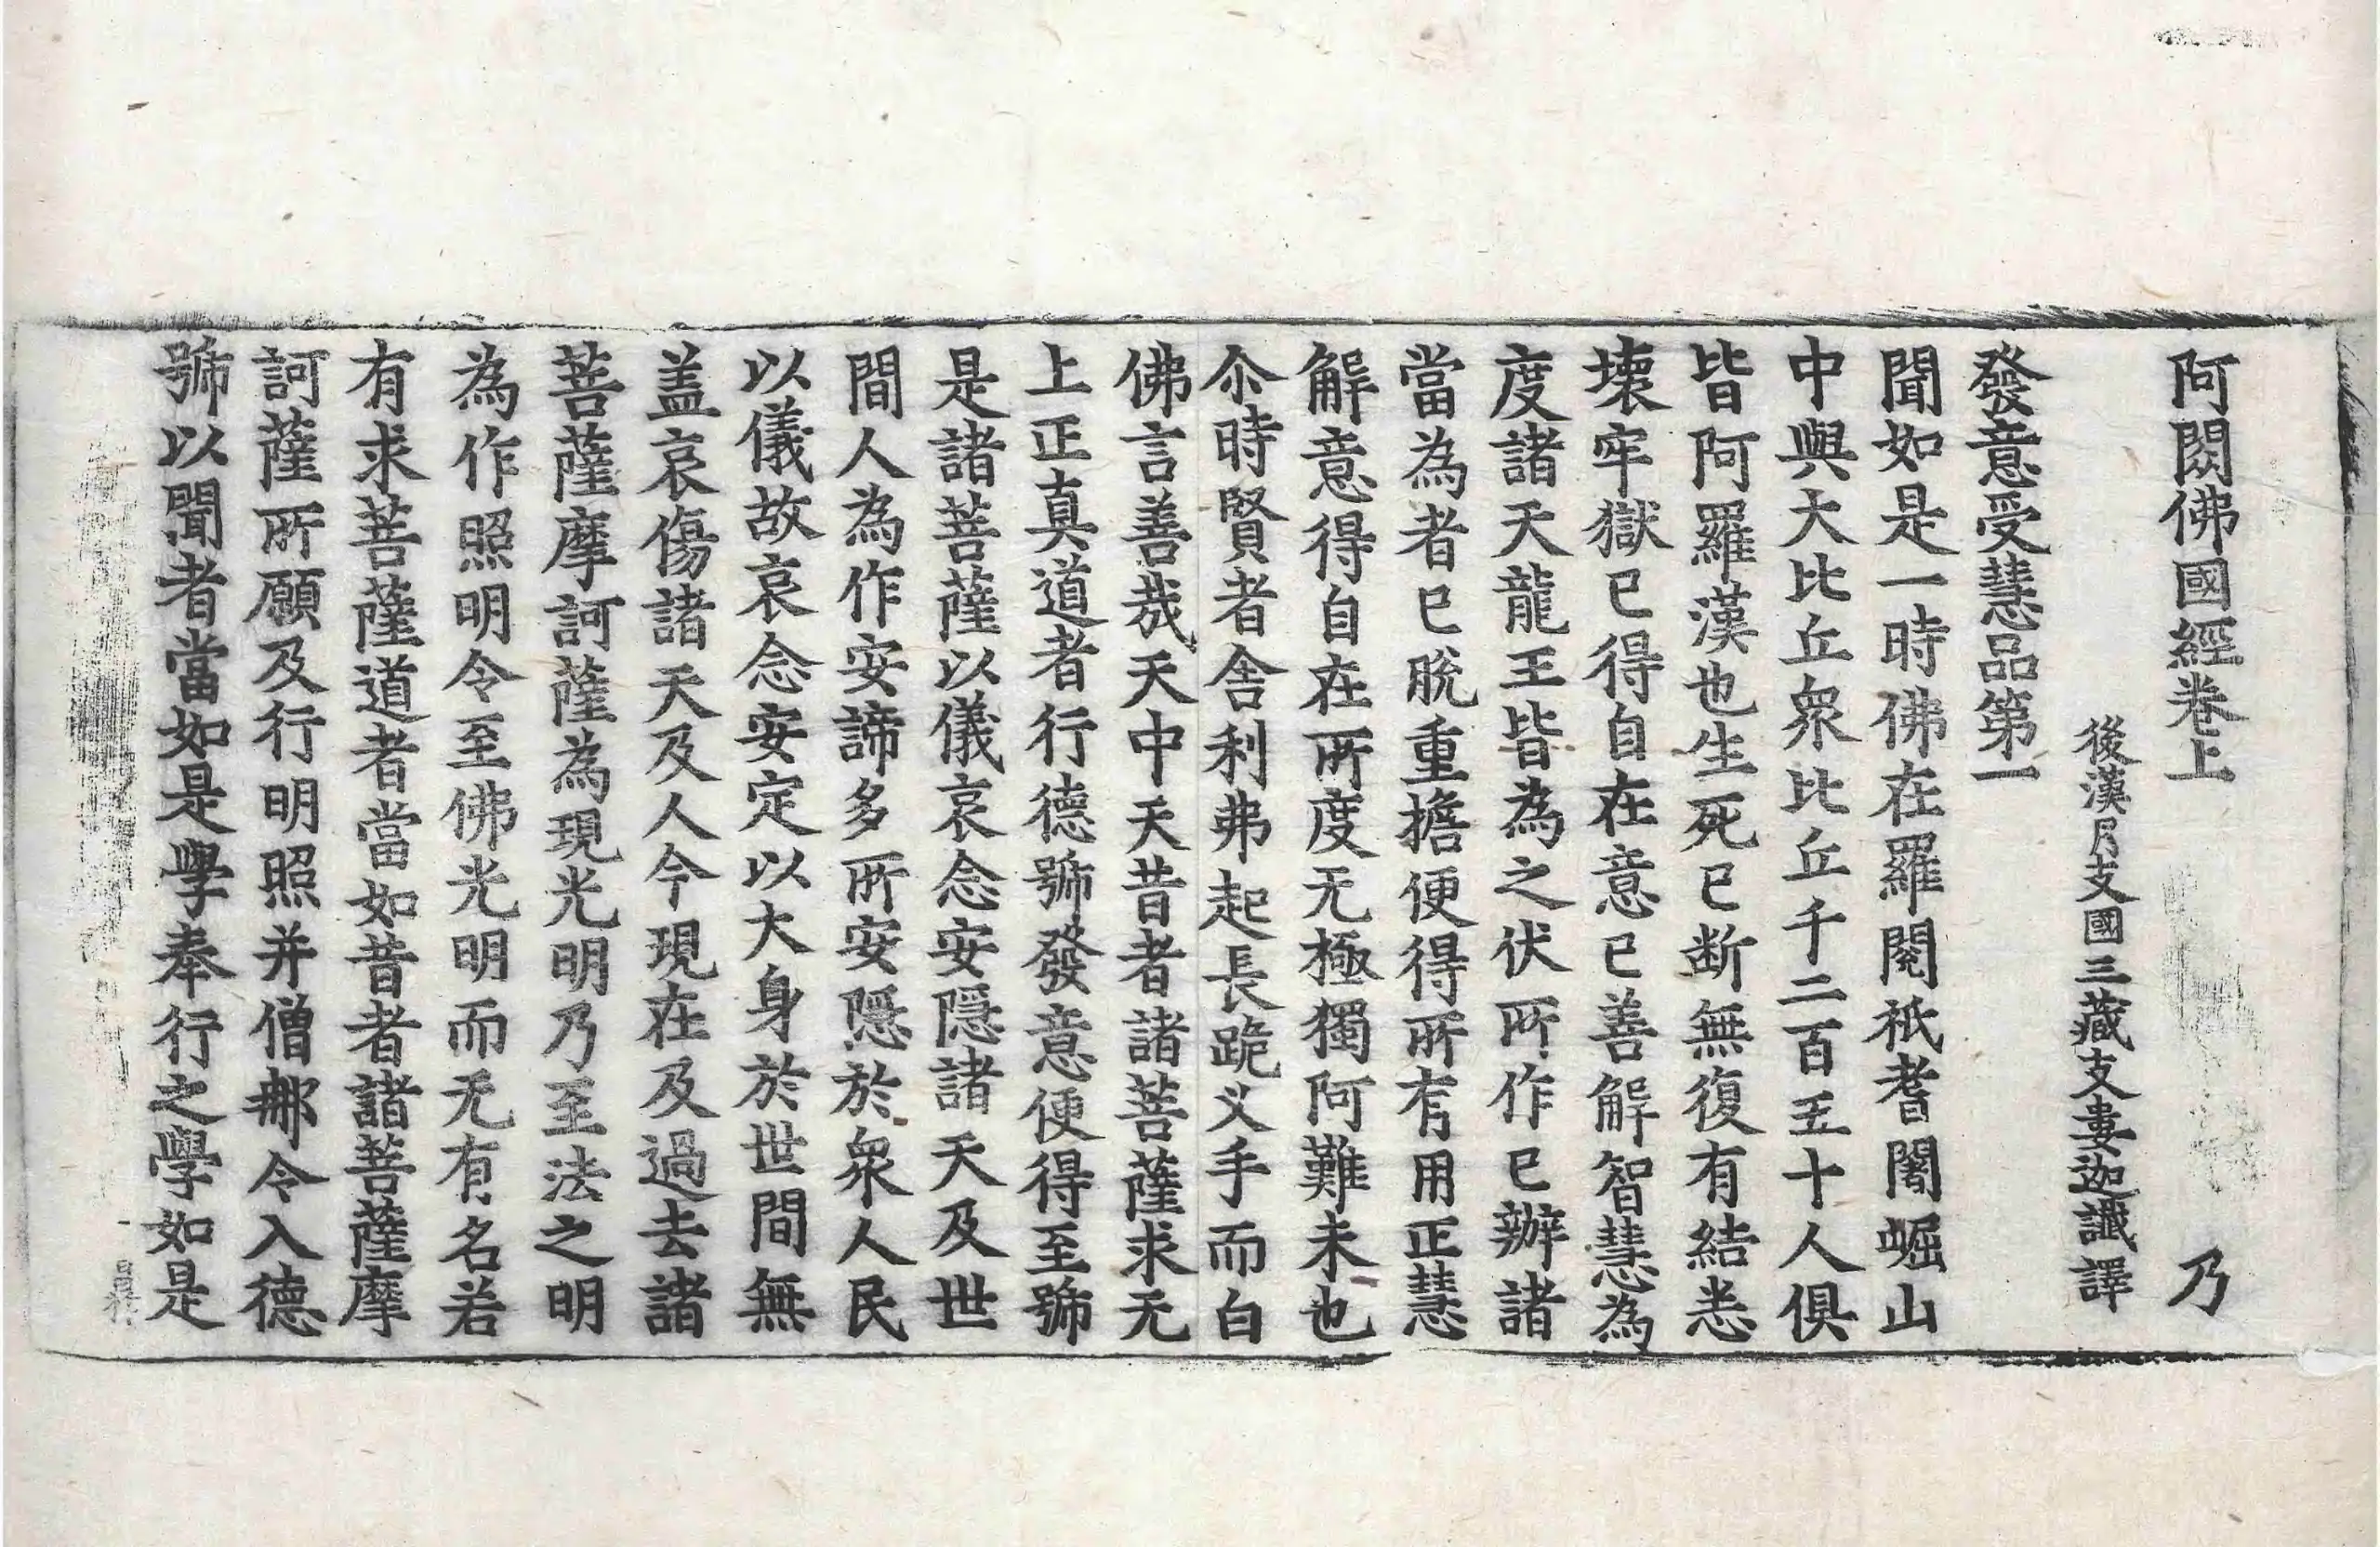 阿閦佛國經卷上 乃
後漢月支國三藏支婁迦讖譯
發意受慧品第一
聞如是一時佛在羅閱祇耆闍崛山
中與大比丘衆比丘千二百五十人俱
皆阿羅漢也生死已断無復有結恙
壊牢獄已得自在意已善解智慧為
度諸天龍王皆為之伏所作已辦諸
當為者已脫重擔便得所有用正慧
解意得自在所度无極獨阿難未也
尒時賢者舍利弗起長跪叉手而白
佛言善哉天中天昔者諸菩薩求无
上正真道者行德號發意便得至號
是諸菩薩以儀哀念安隱諸天及世
間人為作安諦多所安隱於衆人民
以儀故哀念安定以大身於世間無
盖哀傷諸天及人今現在及過去諸
菩薩摩訶薩為現光明乃至法之明
為作照明令至佛光明而无有名若
有求菩薩道者當如昔者諸菩薩摩
訶薩所願及行明照并僧那令入德
號以聞者當如是學奉行之學如是